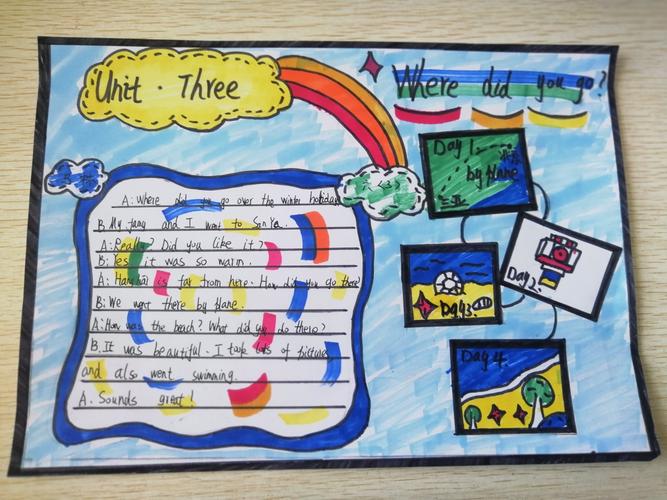 Unit · Three
Where did you go?
A: Where did you go over the winter holiday
B. My fang and I went to San Ya.
A: Really? Did you like it?
B: Yes it was so warm.
A: Hanghai is far from here. How did you go there?
B: We went there by plane.
A: How was the beach? What did you do there?
B. It was beautiful. I took lots of pictures
and also went swimming.
A. Sounds great!
Day 1.
by plane
三亚
Day 2.
Day 3.
Day 4.